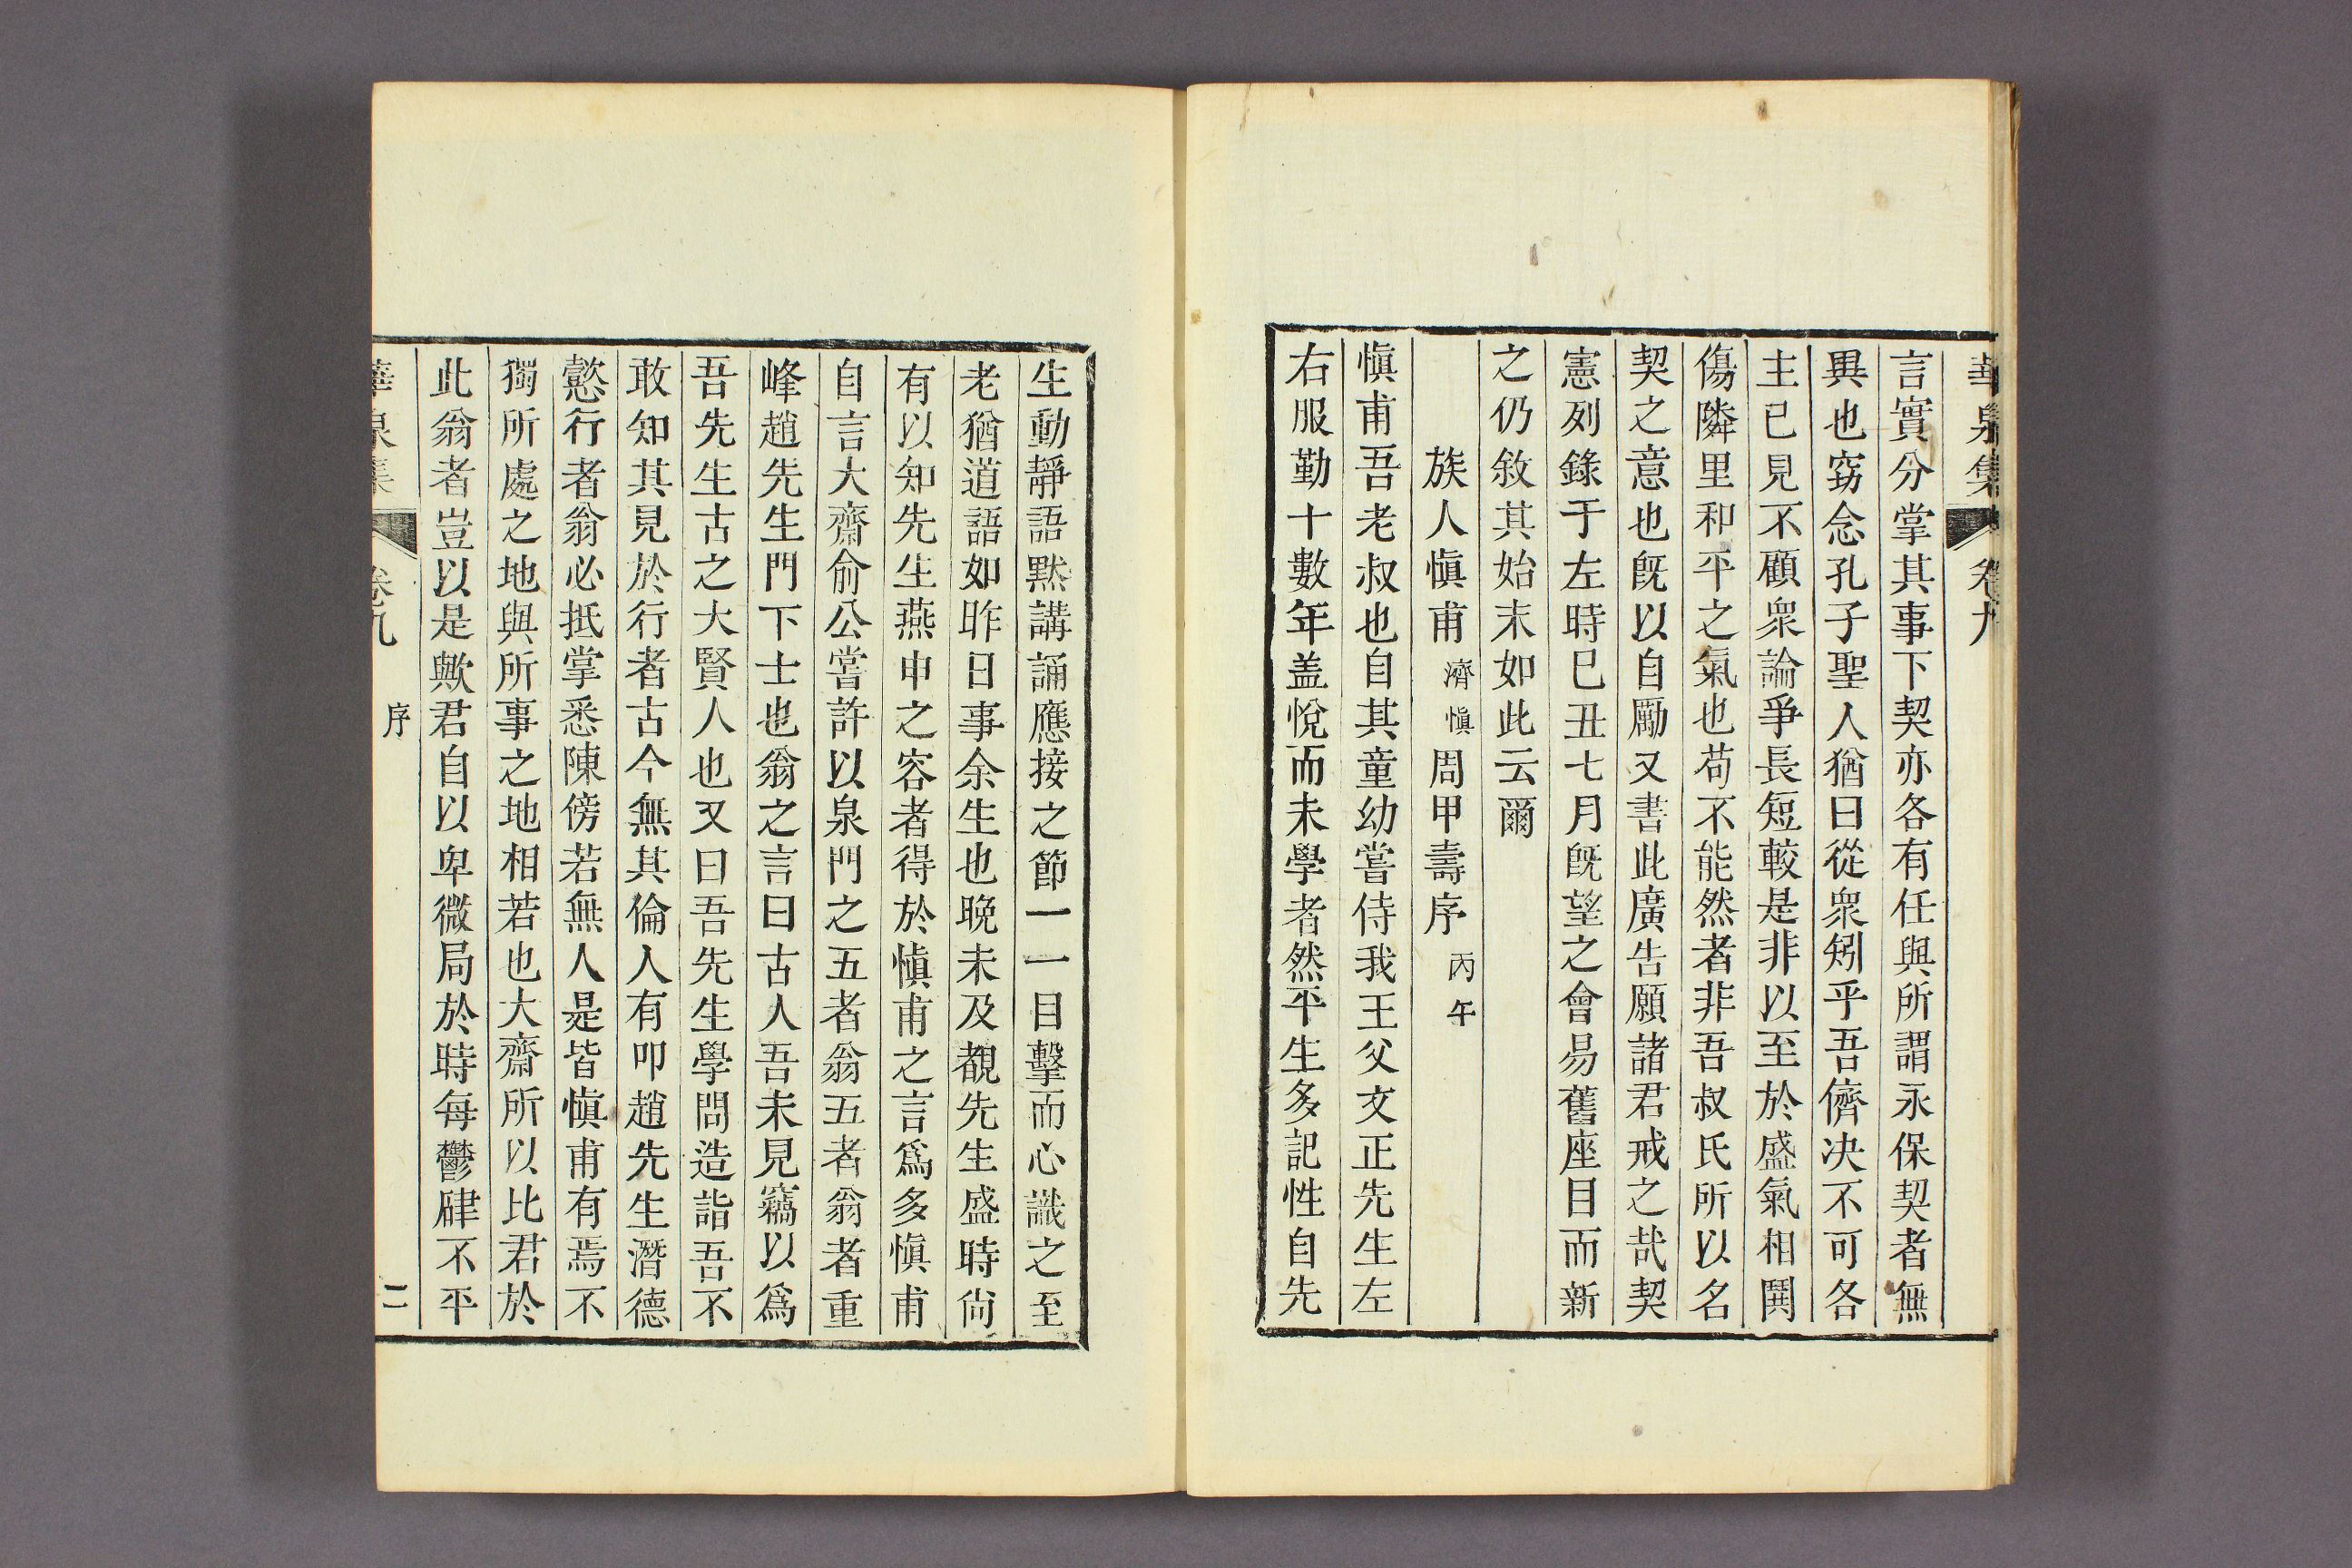 華泉集 卷九
言實分掌其事下契亦各有任與所謂永保契者無
異也窃念孔子聖人猶曰從衆矧乎吾儕决不可各
主已見不顧衆論爭長短較是非以至於盛氣相鬨
傷隣里和平之氣也苟不能然者非吾叔氏所以名
契之意也旣以自勵又書此廣告願諸君戒之哉契
憲列錄于左時巳丑七月旣望之會易舊座目而新
之仍敘其始末如此云爾
族人愼甫濟愼周甲壽序丙午
愼甫吾老叔也自其童幼嘗侍我王父文正先生左
右服勤十數年盖悅而未學者然平生多記性自先
生動靜語默講誦應接之節一一目擊而心識之至
老猶道語如昨日事余生也晚未及覩先生盛時尙
有以知先生燕申之容者得於愼甫之言爲多愼甫
自言大齋俞公嘗許以泉門之五者翁五者翁者重
峰趙先生門下士也翁之言曰古人吾未見竊以爲
吾先生古之大賢人也又曰吾先生學問造詣吾不
敢知其見於行者古今無其倫人有叩趙先生潛德
懿行者翁必抵掌悉陳傍若無人是皆愼甫有焉不
獨所處之地與所事之地相若也大齋所以比君於
此翁者豈以是歟君自以卑微局於時每鬱肆不平
華泉集 卷九 序 二